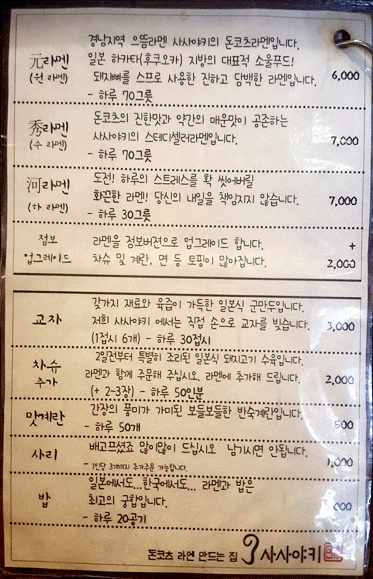 경남지역 으뜸라멘 사사야키의 돈코츠라멘입니다.
元라멘 (원 라멘)
일본 하카타(후쿠오카) 지방의 대표적 소울푸드!
돼지뼈를 스프로 사용한 진하고 담백한 라멘입니다. 6,000
- 하루 70그릇
秀라멘 (수 라멘)
돈코츠의 진한맛과 약간의 매운맛이 공존하는
사사야키의 스테디셀러라멘입니다. 7,000
- 하루 70그릇
河라멘 (하 라멘)
도전! 하루의 스트레스를 확 씻어버릴
화끈한 라멘! 당신의 내일을 책임지지 않습니다. 7,000
- 하루 30그릇
점보 업그레이드
라멘을 점보버젼으로 업그레이드 합니다. +
차슈 및 계란, 면 등 토핑이 많아집니다. 2,000
교자
갖가지 재료와 육즙이 가득한 일본식 군만두입니다.
저희 사사야키 에서는 직접 손으로 교자를 빚습니다. 3,000
(1접시 6개) - 하루 30접시
차슈 추가
2일전부터 특별히 조리된 일본식 돼지고기 수육입니다.
라멘과 함께 주문해 주십시오. 라멘에 추가해 드립니다. 2,000
(+ 2~3장) - 하루 50인분
맛계란
간장의 풍미가 가미된 보들보들한 반숙계란입니다.
- 하루 50개
사리
배고프셨죠 많이많이 드십시오 남기시면 안됩니다. 1,000
밥
일본에서도...한국에서도... 라멘과 밥은
최고의 궁합입니다.
- 하루 20공기
돈코츠 라멘 만드는 집 사사야키